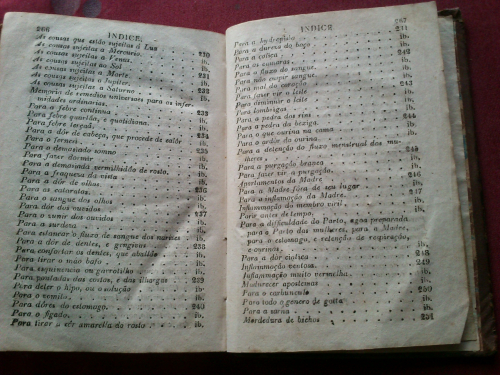 266 INDICE.
As cousas que estão sujeitas á Lua
As cousas sujeitas a Mercurio 230
As cousas sujeitas a Venus. ib.
As cousas sujeitas ao Sol ib.
As cousas sujeitas a Morte. 231
As cousas sujeitas a Jupiter. ib.
As cousas sujeitas a Saturno ib.
Memoria de remedios universaes para as infer-
midades ordinarias. ib.
Para a febre continua 233
Para febre quartãa, e quotidiana. ib.
Para febre terçãa. ib.
Para a dôr de cabeça, que procede de calôr 234
Para o ib.
Para o demasiado somno 235
Para fazer dormir ib.
Para a demasiada vermelhidão do rosto. ib.
Para a fraqueza da vista ib.
Para a dôr de olhos ib.
Para as cataratas ib.
Para o sangue dos olhos ib.
Para dôr dos ouvidos ib.
Para o zunir dos ouvidos 237
Para a surdeza ib.
Para estancar o fluxo de sangue dos narizes ib.
Para a dôr de dentes, e gengivas 238
Para confortar os dentes, que abalão ib.
Para tirar o máo bafo ib.
Para esquinencia ou garrotilho ib.
Para pontadas das costas, e das ilhargas ib.
Para deter o hipo, ou o soluço 239
Para o vomito ib.
Para dôres do estomago. 240
Para o figado. ib.
Para tirar a côr amarella do rosto. ib.
INDICE 267
Para a hydropisia 241
Para a dureza do baço ib.
Para a colica ib.
Para as camaras ib.
Para o fluxo do sangue ib.
Para não cuspir sangue ib.
Para mal do coração ib.
Para fazer vir o leite 243
Para diminuir o leite ib.
Para lombrigas ib.
Para a pedra dos rins ib.
Para a pedra da bexiga. ib.
Para o que ourina na cama ib.
Para o ardôr da ourina ib.
Para a detenção do fluxo menstrual das mu-
lheres 245
Para a purgação branca ib.
Para fazer vir a purgação. 246
Apartamentos da Madre ib.
Para a Madre fóra de seu lugar ib.
Para a inflamação da Madre. 247
Inflamação do membro veril ib.
Parir antes de tempo. ib.
Para a difficuldade do Parto, agoa preparada
para o Parto das mulheres, para a Madre,
para o estomago, e retenção de respiração,
e ourinas. ib.
Para a dôr ciatica 248
Inflammação ventosa 249
Inflamação muito vermelha. ib.
Madurecer apostemas ib.
Para o carbunculo 250
Para todo o genero de gotta ib.
Para a sarna ib.
Mordedura de bichos 251